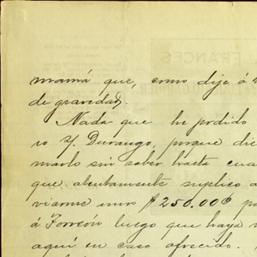 mamá que, como dije á
de gravedad.
Nada que he podido
Durango, porque
marlo sin saber hasta
que atentamente suplico
viarme unos $250.00
á Torreón luego que haya
aquí en caso ofrecido.